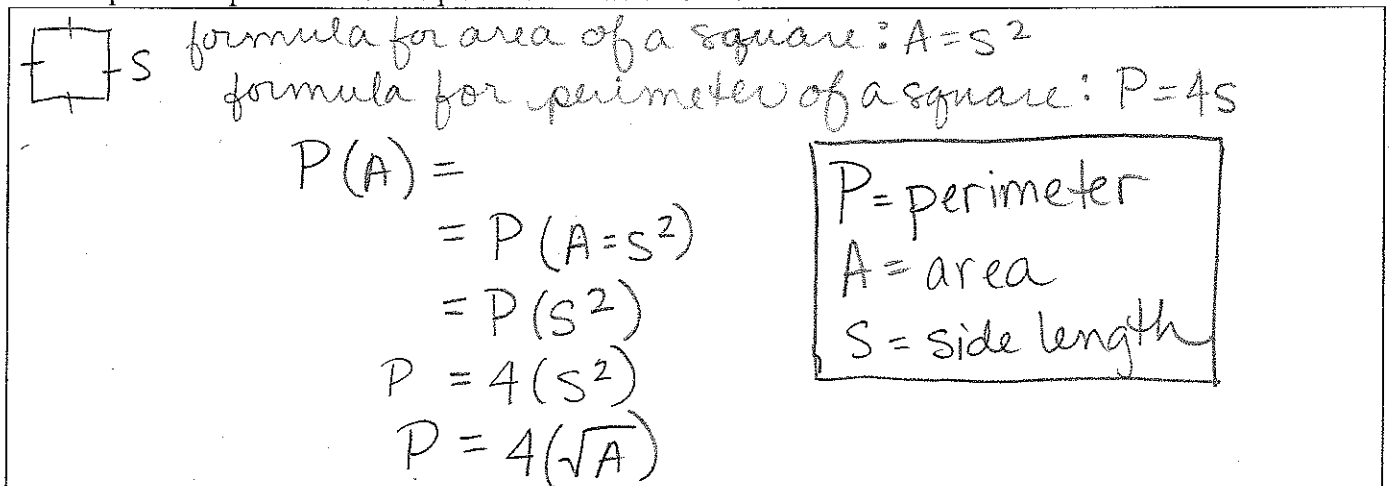 s formula for area of a square: A=s²
formula for perimeter of a square: P=4s
P(A) =
= P(A=s²)
= P(s²)
P = 4(s²)
P = 4(√A)
P= perimeter
A= area
S= side length